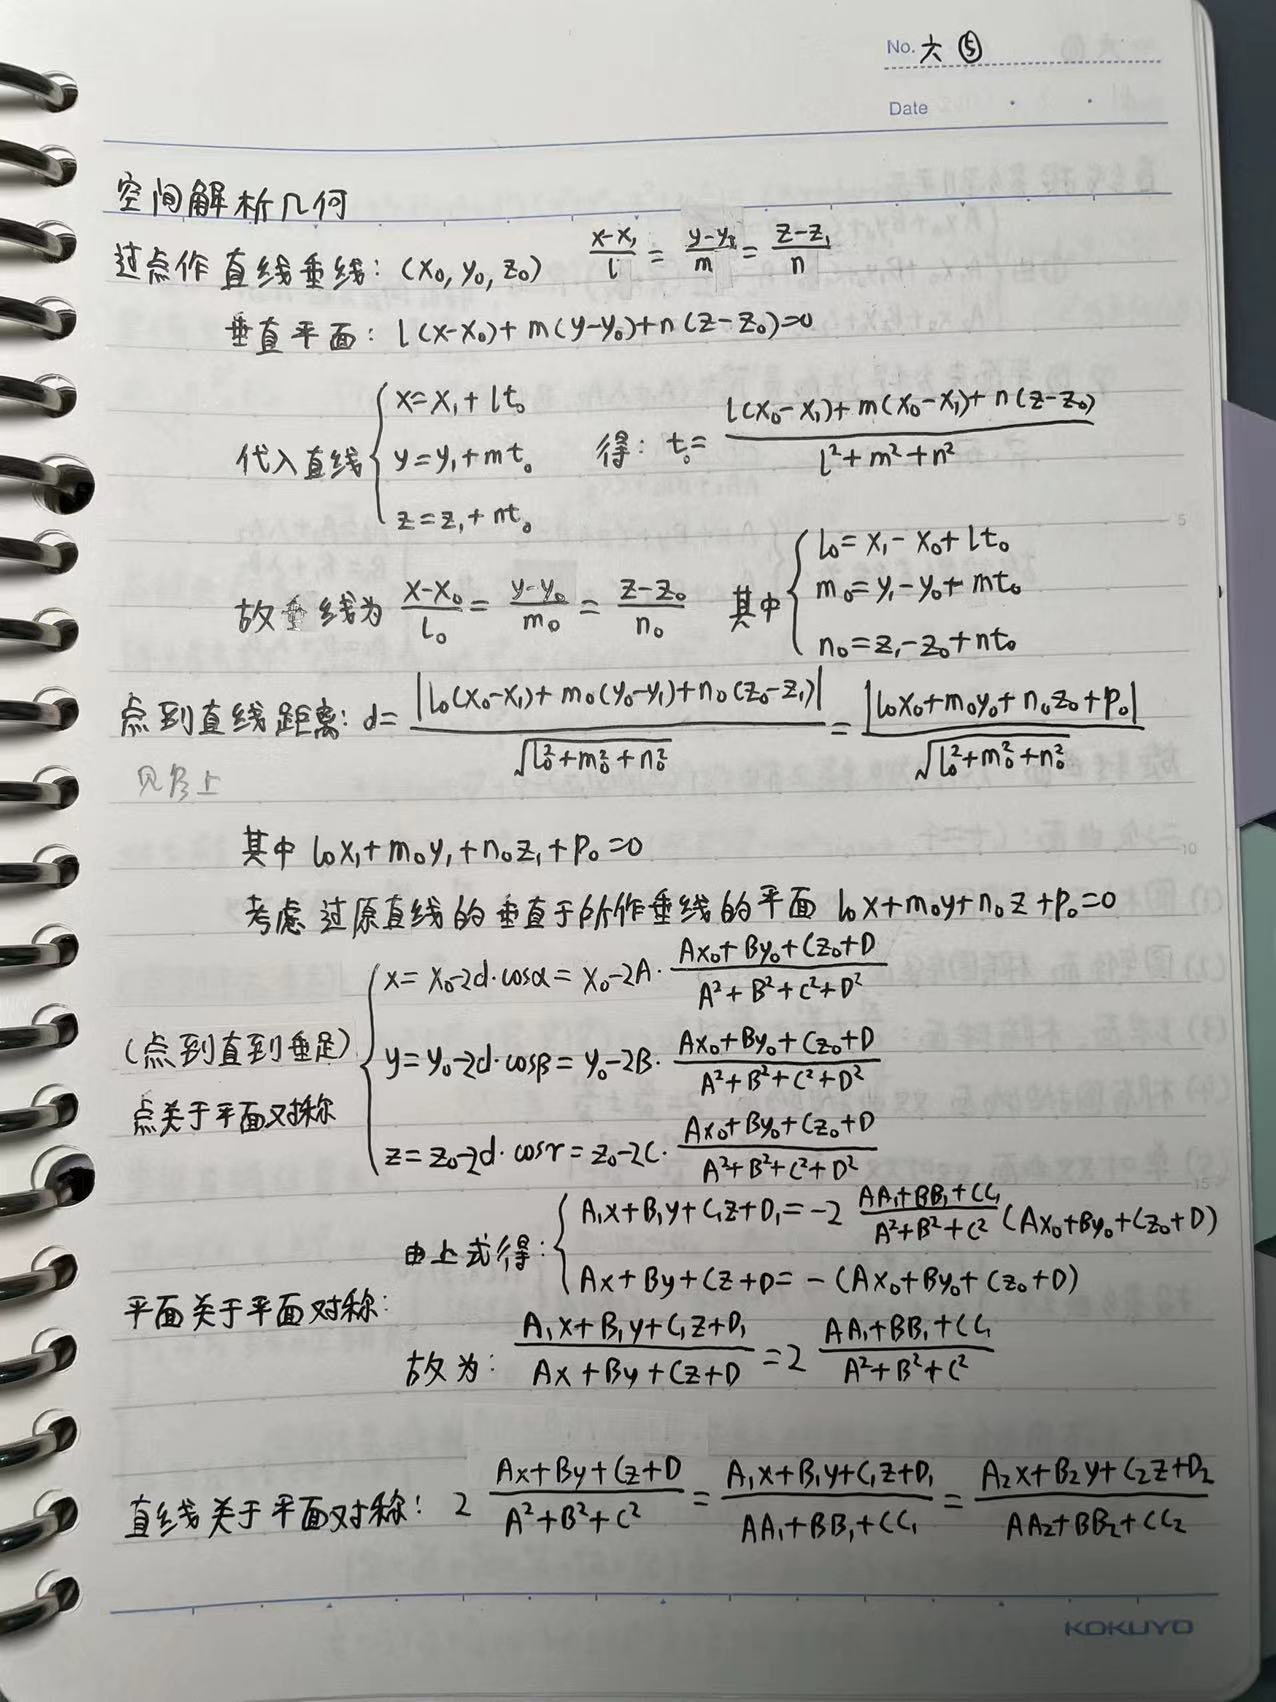 No. 六 ⑤
Date
空间解析几何
过点作直线垂线: (x₀, y₀, z₀) (x-x₁)/l = (y-y₁)/m = (z-z₁)/n
垂直平面: l(x-x₀)+m(y-y₀)+n(z-z₀)=0
代入直线 { x=x₁+lt₀
y=y₁+mt₀
z=z₁+nt₀
得: t₀= (l(x₀-x₁)+m(x₀-x₁)+n(z-z₀))/(l²+m²+n²)
故垂线为 (x-x₀)/l₀ = (y-y₀)/m₀ = (z-z₀)/n₀ 其中 { l₀=x₁-x₀+lt₀
m₀=y₁-y₀+mt₀
n₀=z₁-z₀+nt₀
点到直线距离: d= |l₀(x₀-x₁)+m₀(y₀-y₁)+n₀(z₀-z₁)|/√(l₀²+m₀²+n₀²) = |l₀x₀+m₀y₀+n₀z₀+p₀|/√(l₀²+m₀²+n₀²)
其中 l₀x₁+m₀y₁+n₀z₁+p₀=0
考虑过原直线的垂直于所作垂线的平面 l₀x+m₀y+n₀z+p₀=0
(点到直到垂足)
点关于平面对称
{ x=x₀-2d·cosα=x₀-2A·(Ax₀+By₀+Cz₀+D)/(A²+B²+C²+D²)
y=y₀-2d·cosβ=y₀-2B·(Ax₀+By₀+Cz₀+D)/(A²+B²+C²+D²)
z=z₀-2d·cosr=z₀-2C·(Ax₀+By₀+Cz₀+D)/(A²+B²+C²+D²)
平面关于平面对称:
由上式得: { A₁x+B₁y+C₁z+D₁=-2 (AA₁+BB₁+CC₁)/(A²+B²+C²) (Ax₀+By₀+Cz₀+D)
Ax+By+Cz+D=-(Ax₀+By₀+Cz₀+D)
故为: (A₁x+B₁y+C₁z+D₁)/(Ax+By+Cz+D) = 2 (AA₁+BB₁+CC₁)/(A²+B²+C²)
直线关于平面对称: 2 (Ax+By+Cz+D)/(A²+B²+C²) = (A₁x+B₁y+C₁z+D₁)/(AA₁+BB₁+CC₁) = (A₂x+B₂y+C₂z+D₂)/(AA₂+BB₂+CC₂)
KOKUYO